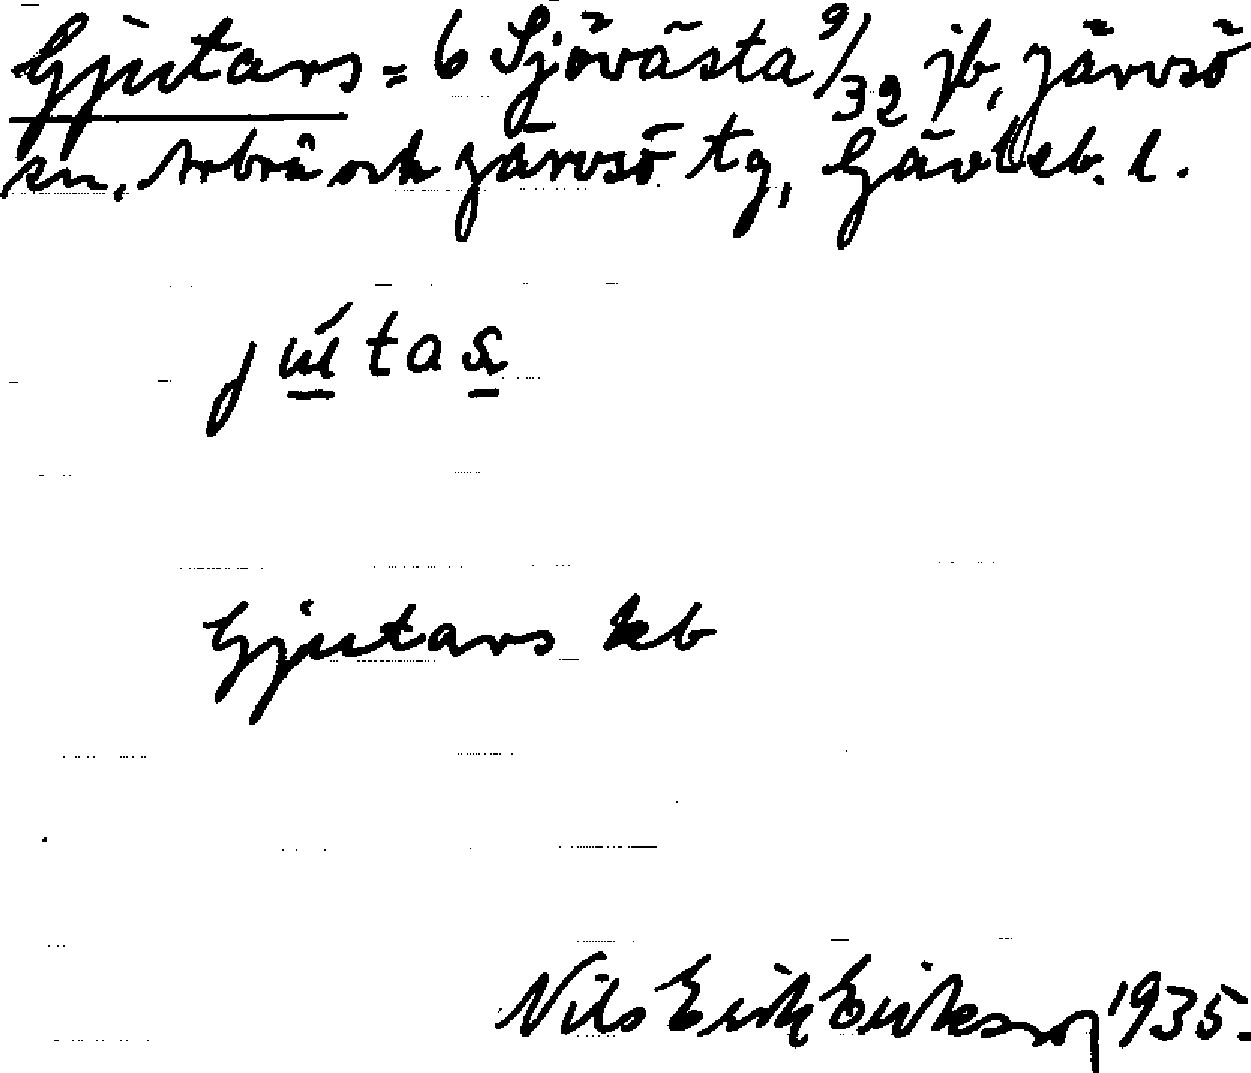 Gjutars = 6 Sjövästa 9/32 jb, Järvsö
sn, Arbrå och Järvsö tg, Gävleb. l.
Gjutars kb
Nils Erik Eriksson 1935.